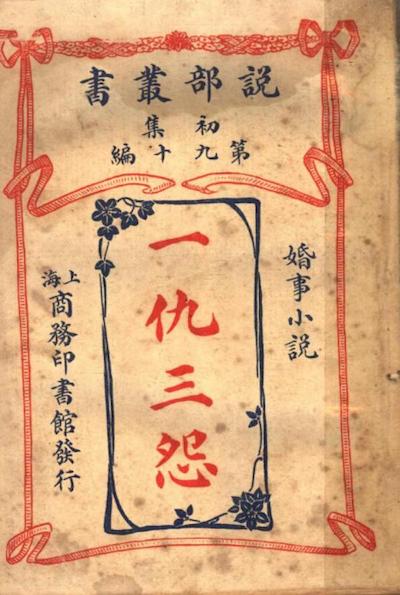 説部叢書
初集
第九十編
婚事小説
一仇三怨
上海商務印書館發行